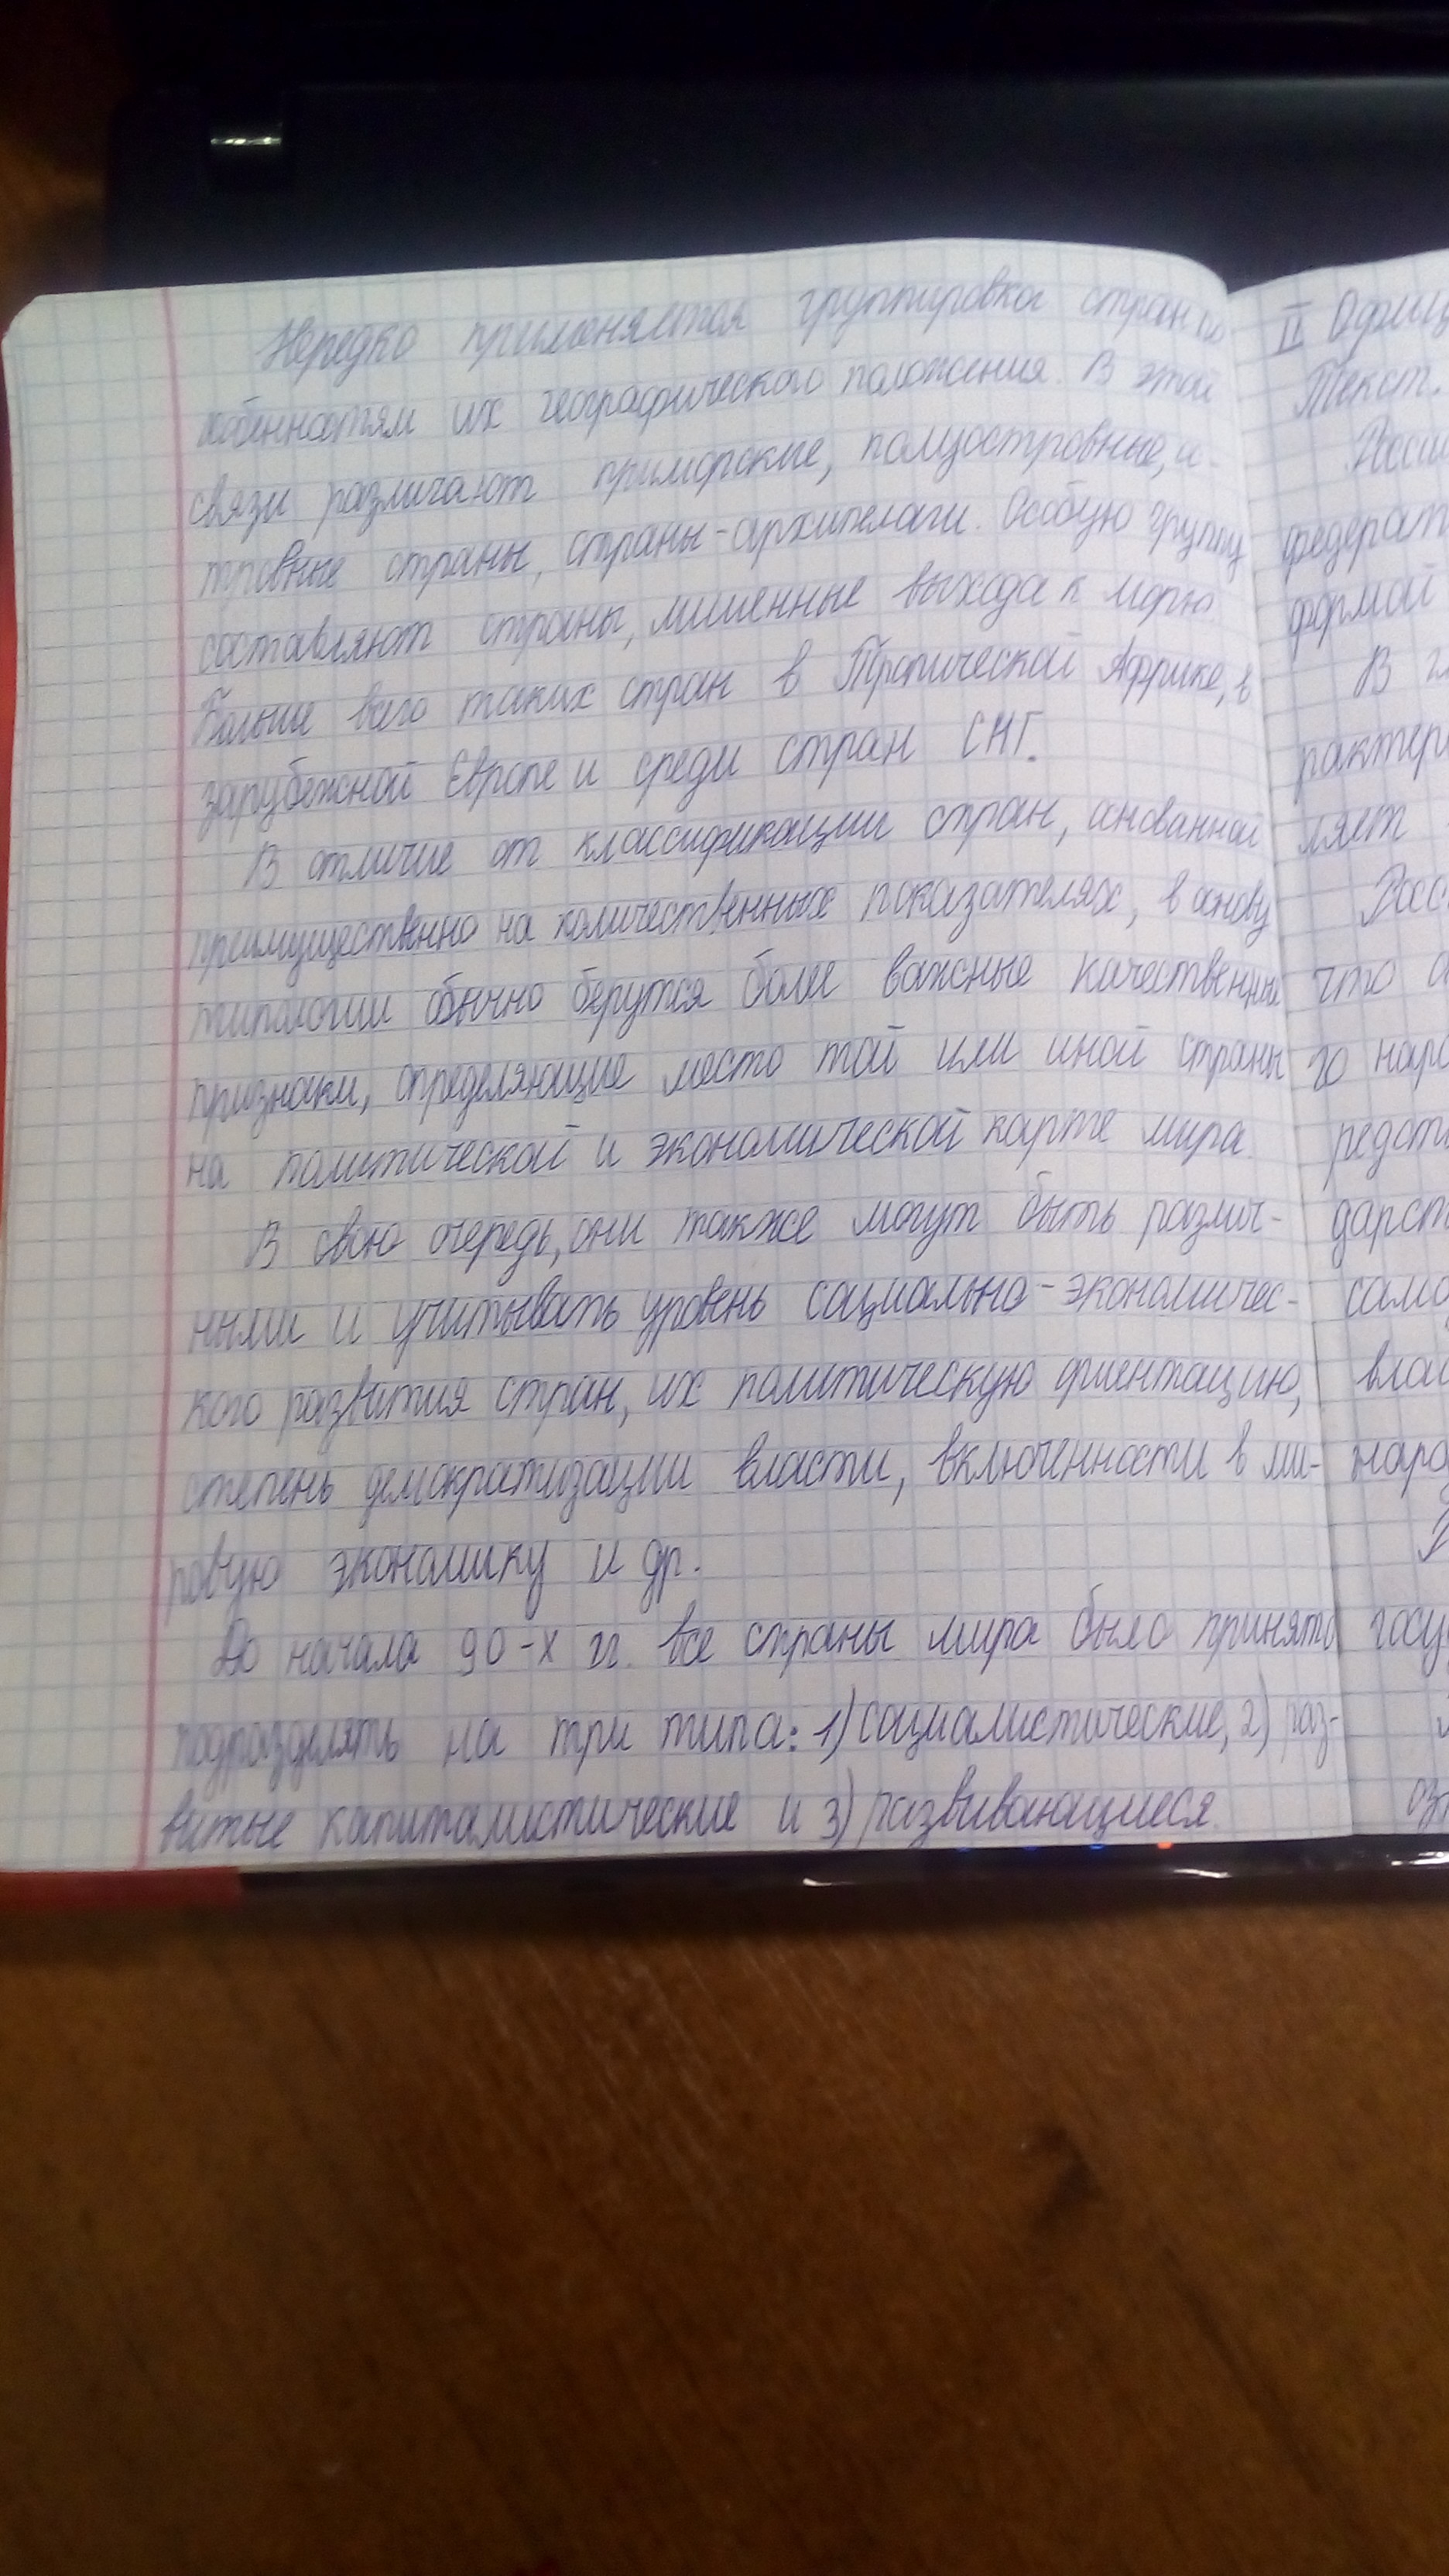 Нередко применяется группировка стран по
особенностям их географического положения. В этой
связи различают приморские, полуостровные, ос-
тровные страны, страны-архипелаги. Особую группу
составляют страны, лишенные выхода к морю.
Больше всего таких стран в Тропической Африке, в
зарубежной Европе и среди стран СНГ.
В отличие от классификации стран, основанной
преимущественно на количественных показателях, в основу
типологии обычно берутся более важные качественные
признаки, определяющие место той или иной страны
на политической и экономической карте мира.
В свою очередь, они также могут быть различ-
ными и учитывать уровень социально-экономичес-
кого развития стран, их политическую ориентацию,
степень демократизации власти, включенности в ми-
ровую экономику и др.
До начала 90-х гг. все страны мира было принято
подразделять на три типа: 1) социалистические, 2) раз-
витые капиталистические и 3) развивающиеся.
II Офиц
Текст.
Росси
федерат
формой
В
рактер
ляет
Росс
что
го наро
редст
дарст
само
влас
наро
госу